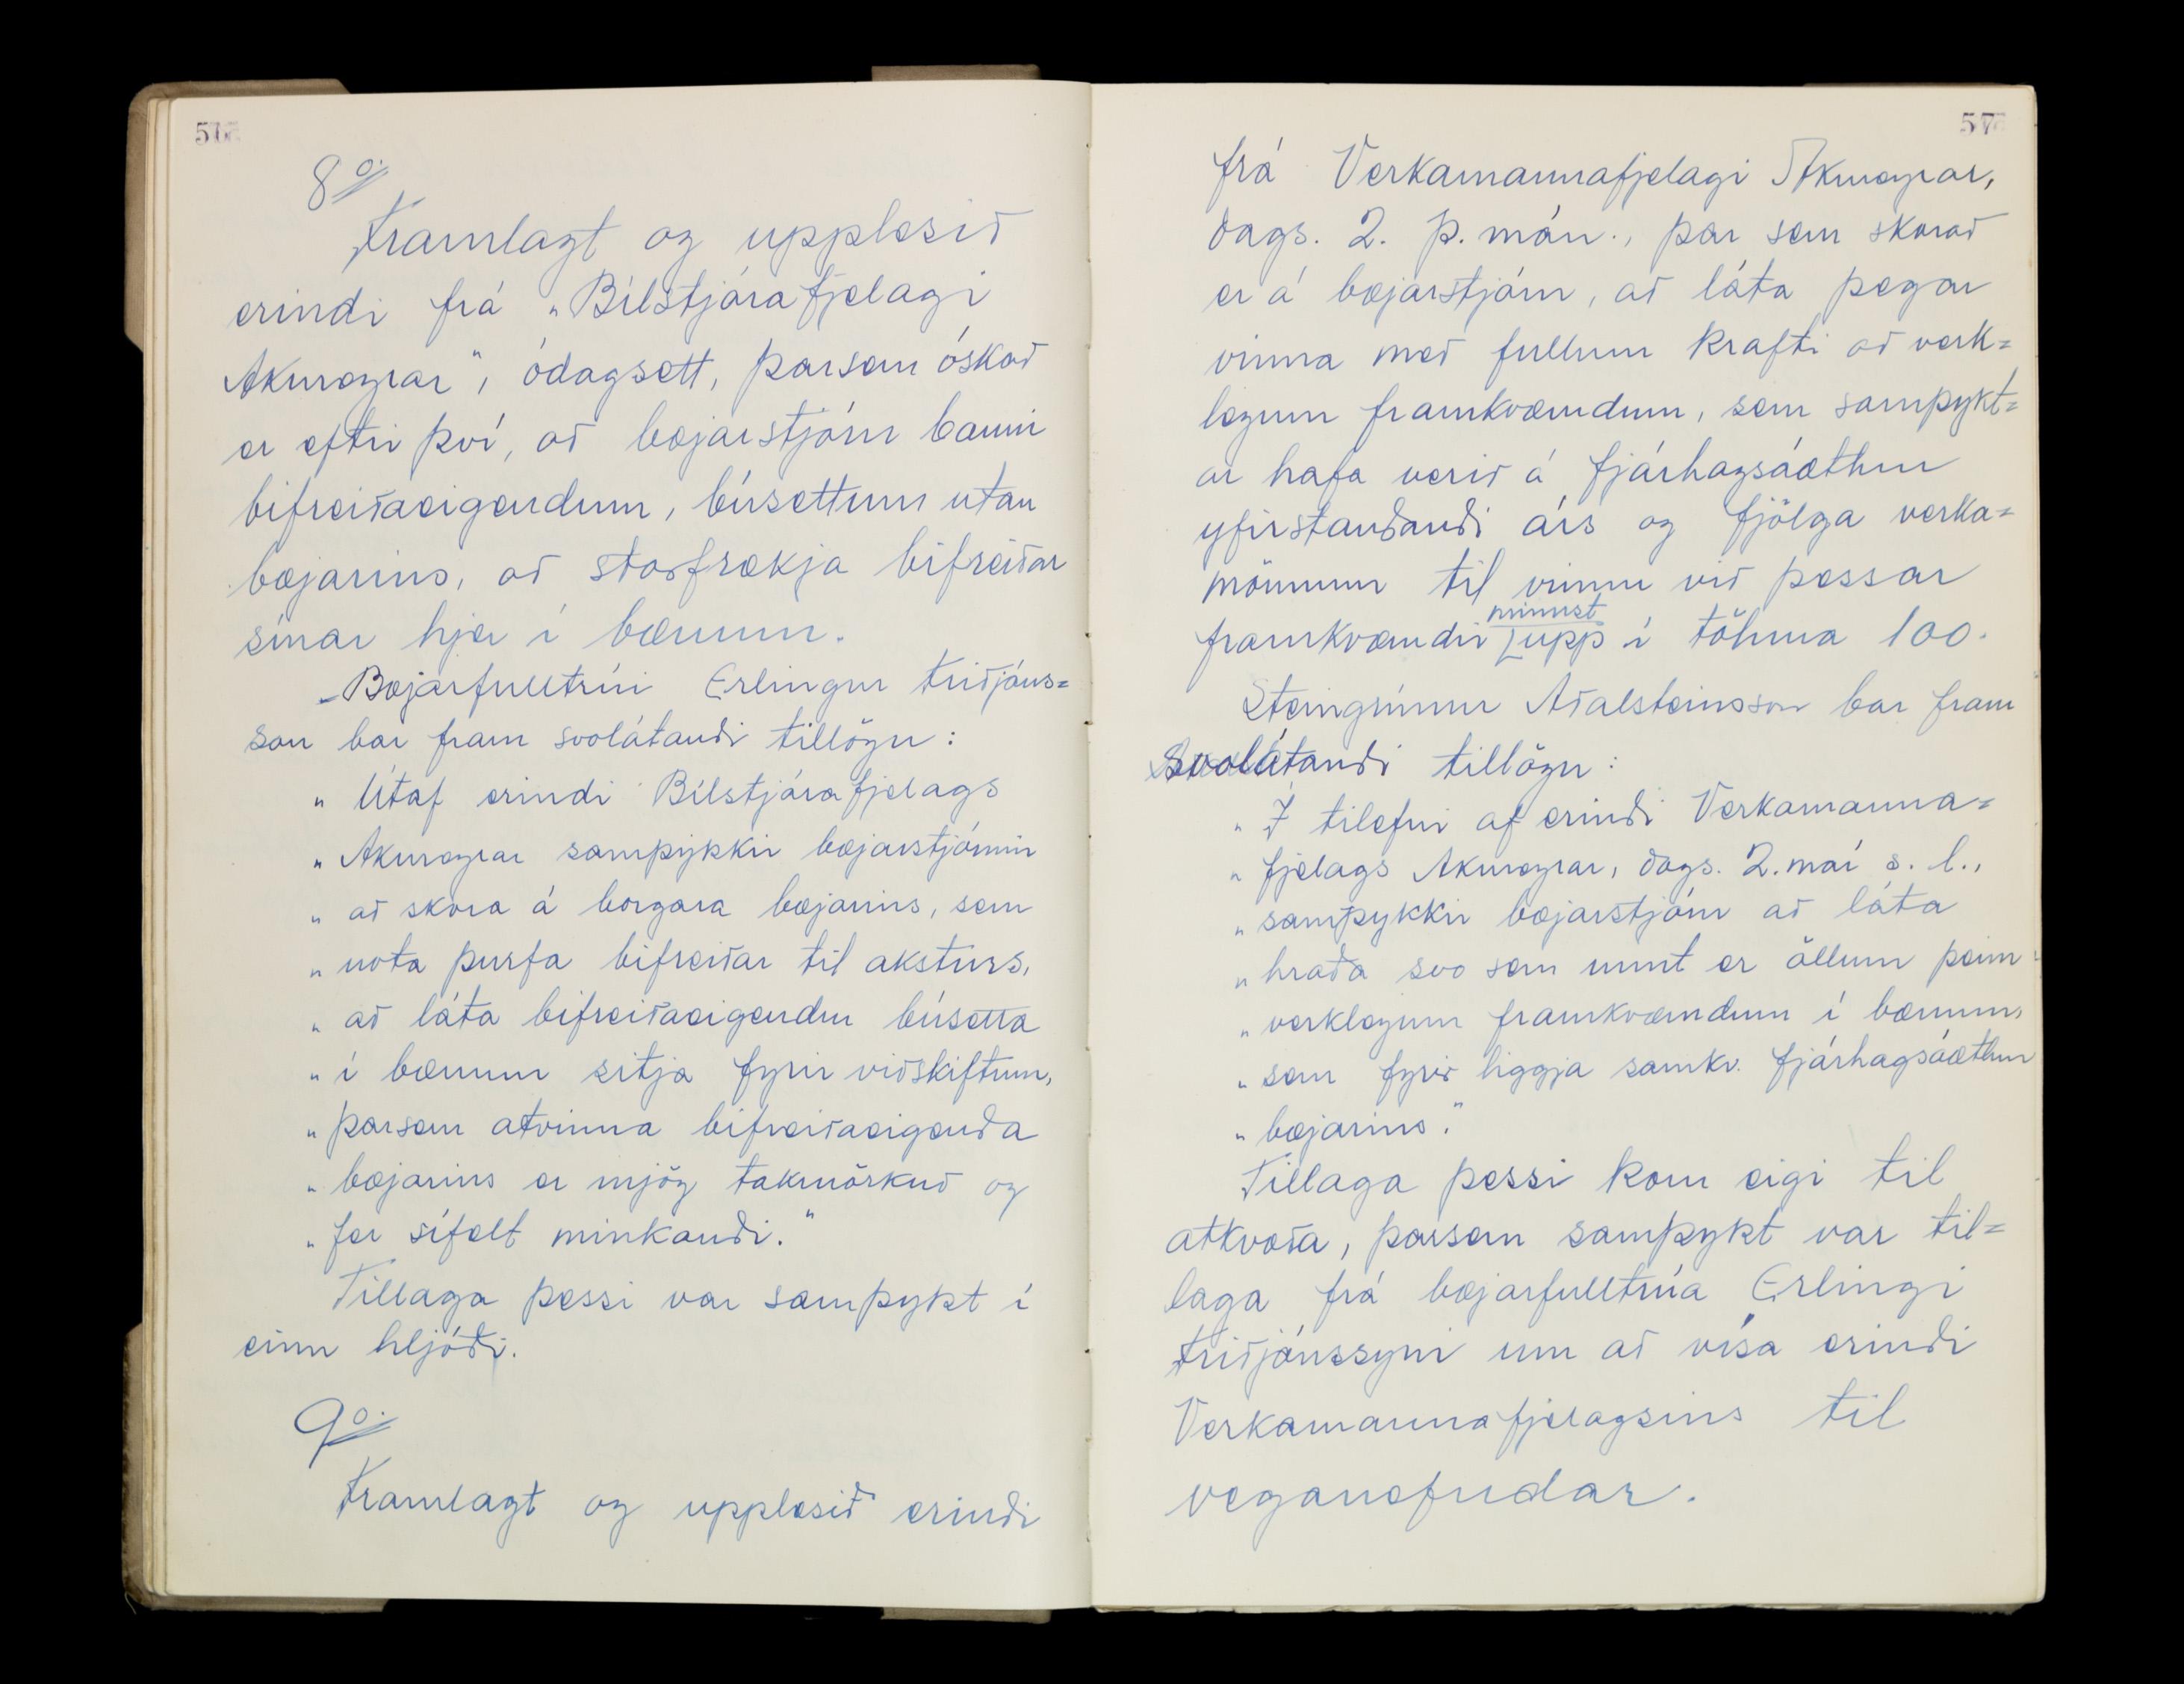 56
8º
Framlagt og upplesið
erindi frá „Bílstjórafjelagi
Akureyrar“, ódagsett, þarsem óskað
er eftir því, að bæjarstjórn banni
bifreiðaeigendum, búsettum utan
bæjarins, að starfrækja bifreiðar
sínar hjer í bænum.
Bæjarfulltrúi Erlingur Friðjóns=
son bar fram svolátandi tillögu:
„ Útaf erindi Bílstjórafjelags
„ Akureyrar samþykkir bæjarstjórnin
„ að skora á borgara bæjarins, sem
„ nota þurfa bifreiðar til aksturs,
„ að láta bifreiðaeigendur búsetta
„ í bænum sitja fyrir viðskiftum,
„ þarsem atvinna bifreiðaeigenda
„ bæjarins er mjög takmörkuð og
„ fer sífelt minkandi.“
Tillaga þessi var samþykt í
einu hljóði.
9º
Framlagt og upplesið erindi
57
frá Verkamannafjelagi Akureyrar,
dags. 2. þ. mán., þar sem skorað
er á bæjarstjórn, að láta þegar
vinna með fullum krafti að verk=
legum framkvæmdum, sem samþykt=
ar hafa verið á fjárhagsáætlun
yfirstandandi árs og fjölga verka=
mönnum til vinnu við þessar
framkvæmdir minnst upp í töluna 100.
Steingrímur Aðalsteinsson bar fram
svolátandi tillögu:
„ Í tilefni af erindi Verkamanna=
„ fjelags Akureyrar, dags. 2. maí s. l.,
„ samþykkir bæjarstjórn að láta
„ hraða svo sem unnt er öllum þeim
„ verklegum framkvæmdum í bænum,
„ sem fyrir liggja samkv. fjárhagsáætlun
„ bæjarins.“
Tillaga þessi kom eigi til
atkvæða, þarsem samþykt var til=
laga frá bæjarfulltrúa Erlingi
Friðjónssyni um að vísa erindi
Verkamannafjelagsins til
veganefndar.